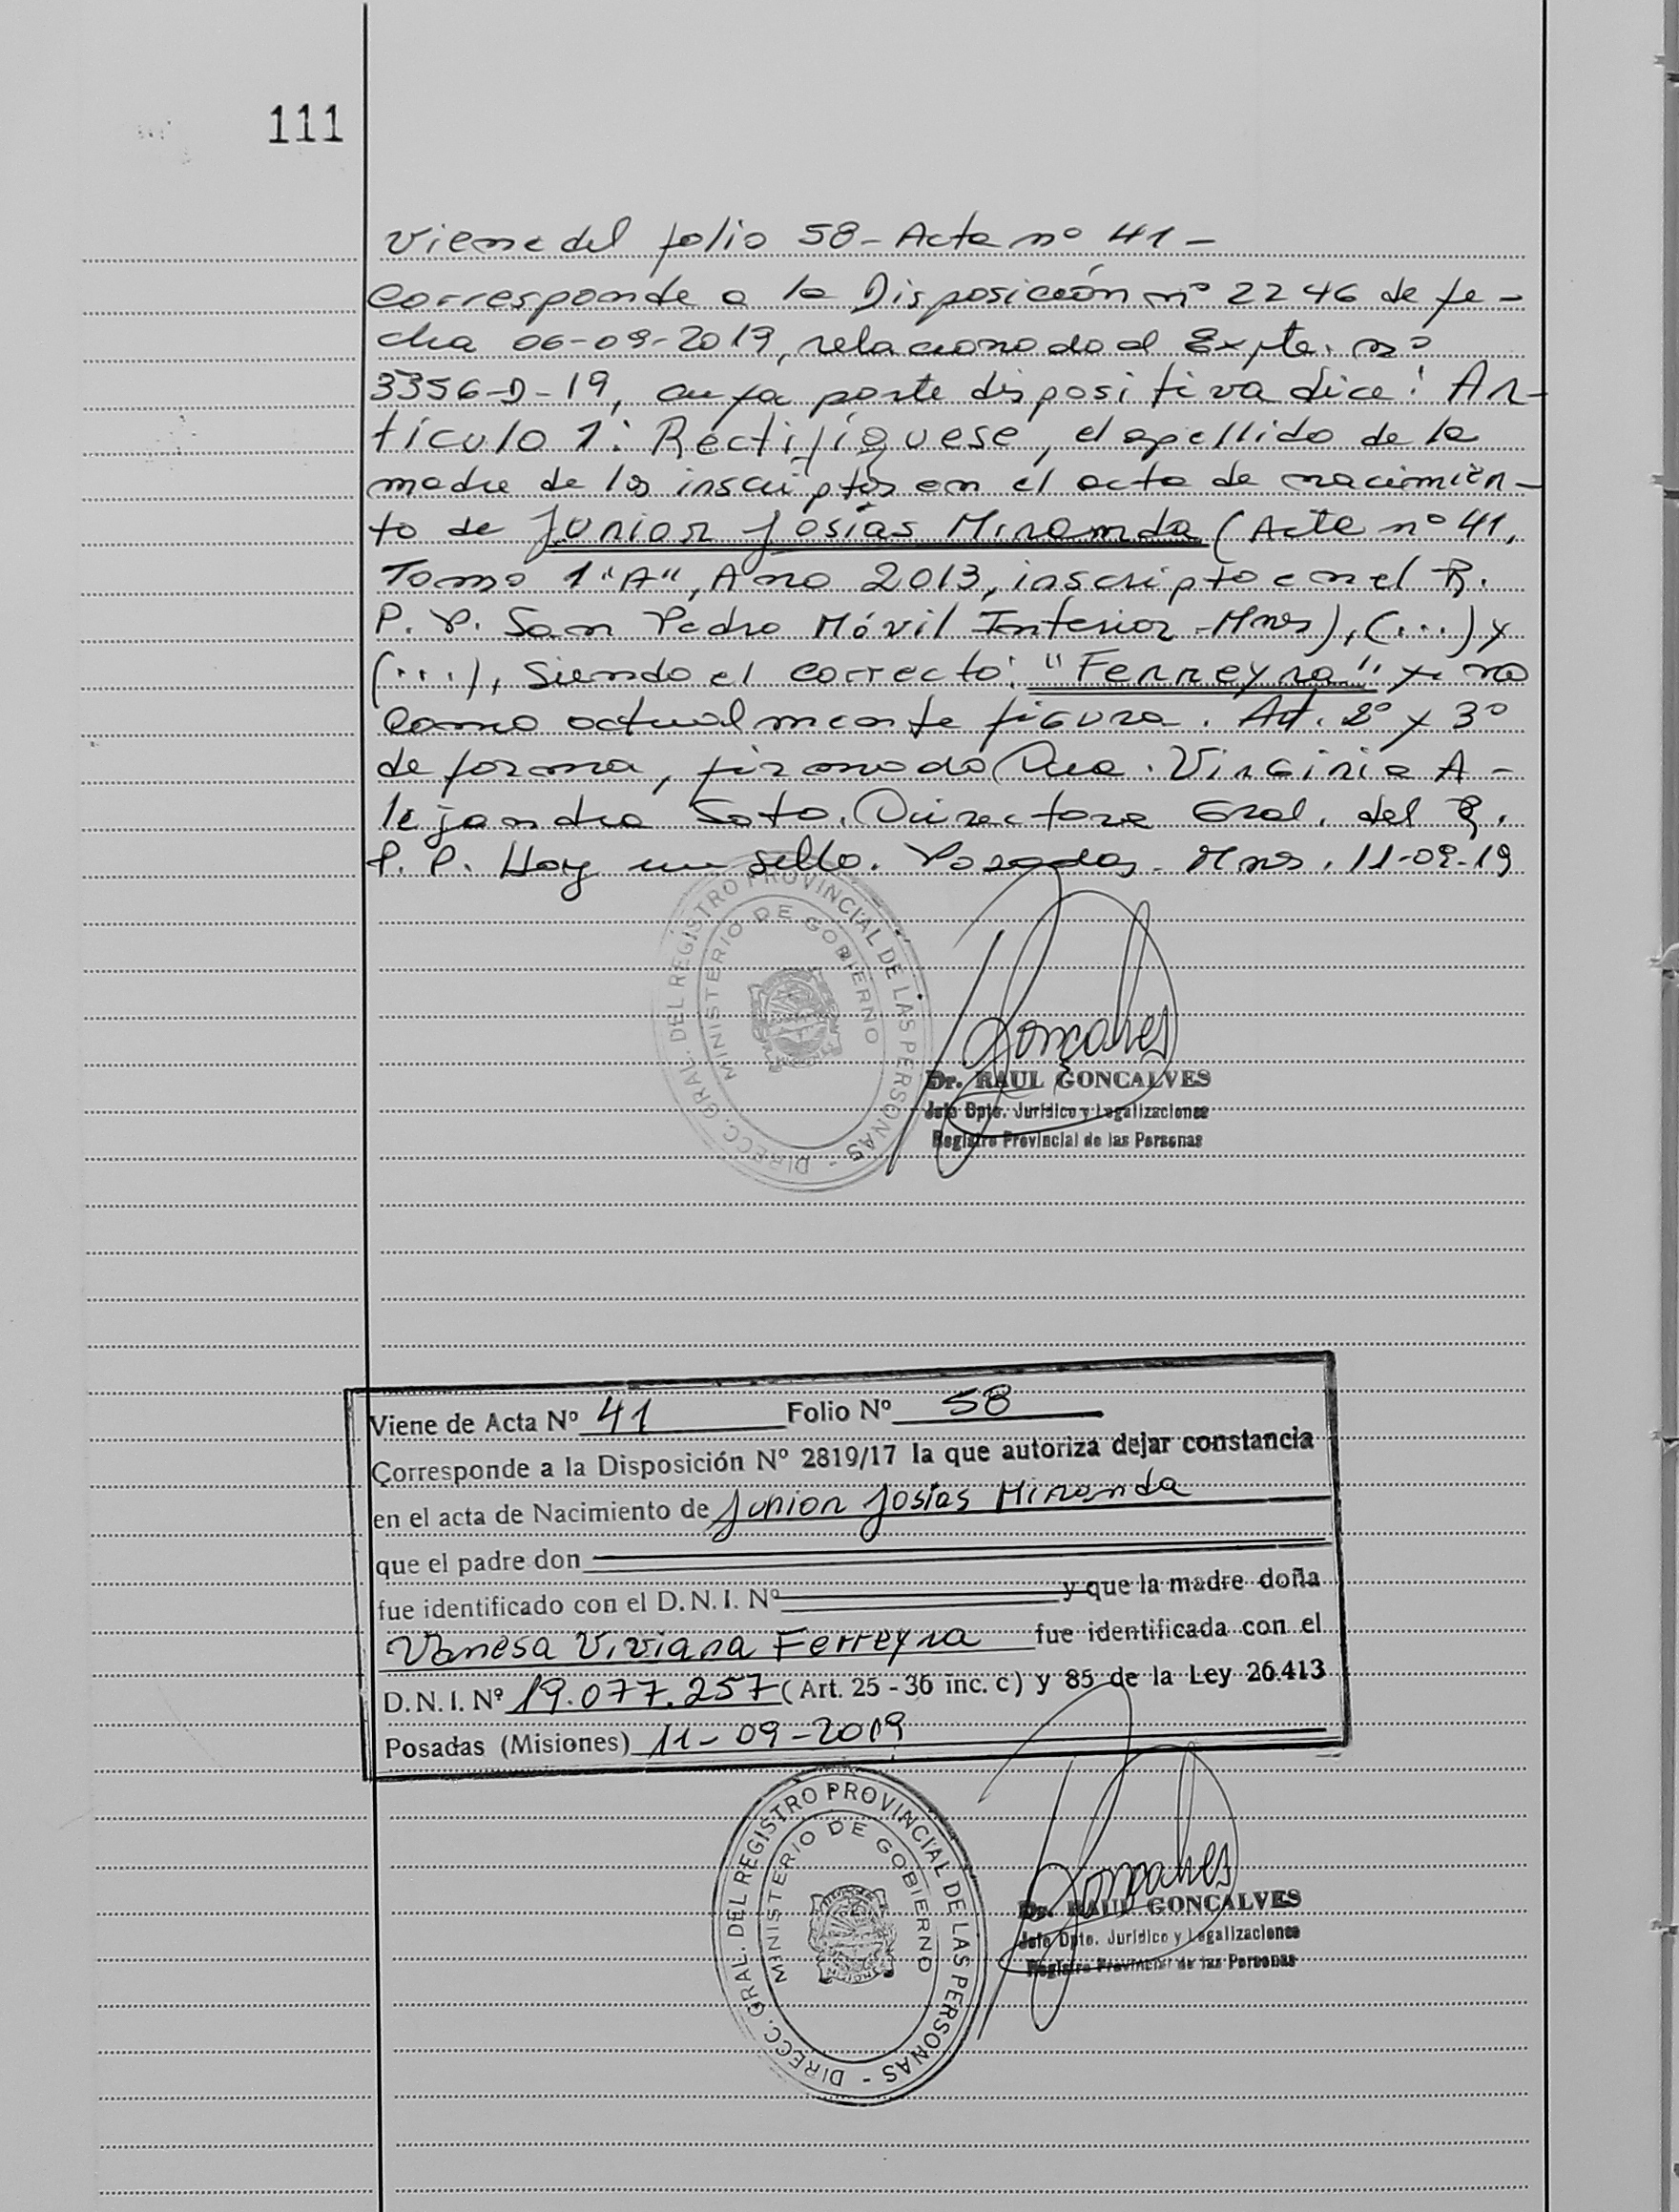 111
Viene del folio 58 - Acta nº 41 -
Corresponde a la Disposición nº 2246 de fe-
cha 06-09-2019, relacionado al Expte. nº
3356-D-19, cuya parte dispositiva dice: Ar-
tículo 1: Rectifíquese, el apellido de la
madre de los inscriptos en el acta de nacimien-
to de Junior Josías Miranda (Acta nº 41,
Tomo 1 "A", Año 2013, inscripto en el R.
P. P. San Pedro Móvil Interior - Mnes), (...) y
(...), siendo el correcto: "Ferreyra" y no
como actualmente figura. Art. 2º y 3º
de forma, firmado Dra. Virginia A-
lejandra Soto. Directora Gral. del R.
P. P. Hay un sello. Posadas - Mnes. 11-09-19
DIRECC. GRAL. DEL REGISTRO PROVINCIAL DE LAS PERSONAS -
MINISTERIO DE GOBIERNO
Goncalves
Dr. RAUL GONCALVES
Jefe Dpto. Jurídico y Legalizaciones
Registro Provincial de las Personas
Viene de Acta Nº 41 Folio Nº 58
Corresponde a la Disposición Nº 2819/17 la que autoriza dejar constancia
en el acta de Nacimiento de Junior Josías Miranda
que el padre don
fue identificado con el D.N.I. Nº y que la madre doña
Vanesa Viviana Ferreyra fue identificada con el
D.N.I. Nº 19.077.257 (Art. 25 - 36 inc. c) y 85 de la Ley 26.413
Posadas (Misiones) 11-09-2019
DIRECC. GRAL. DEL REGISTRO PROVINCIAL DE LAS PERSONAS -
MINISTERIO DE GOBIERNO
Goncalves
Dr. RAUL GONCALVES
Jefe Dpto. Jurídico y Legalizaciones
Registro Provincial de las Personas